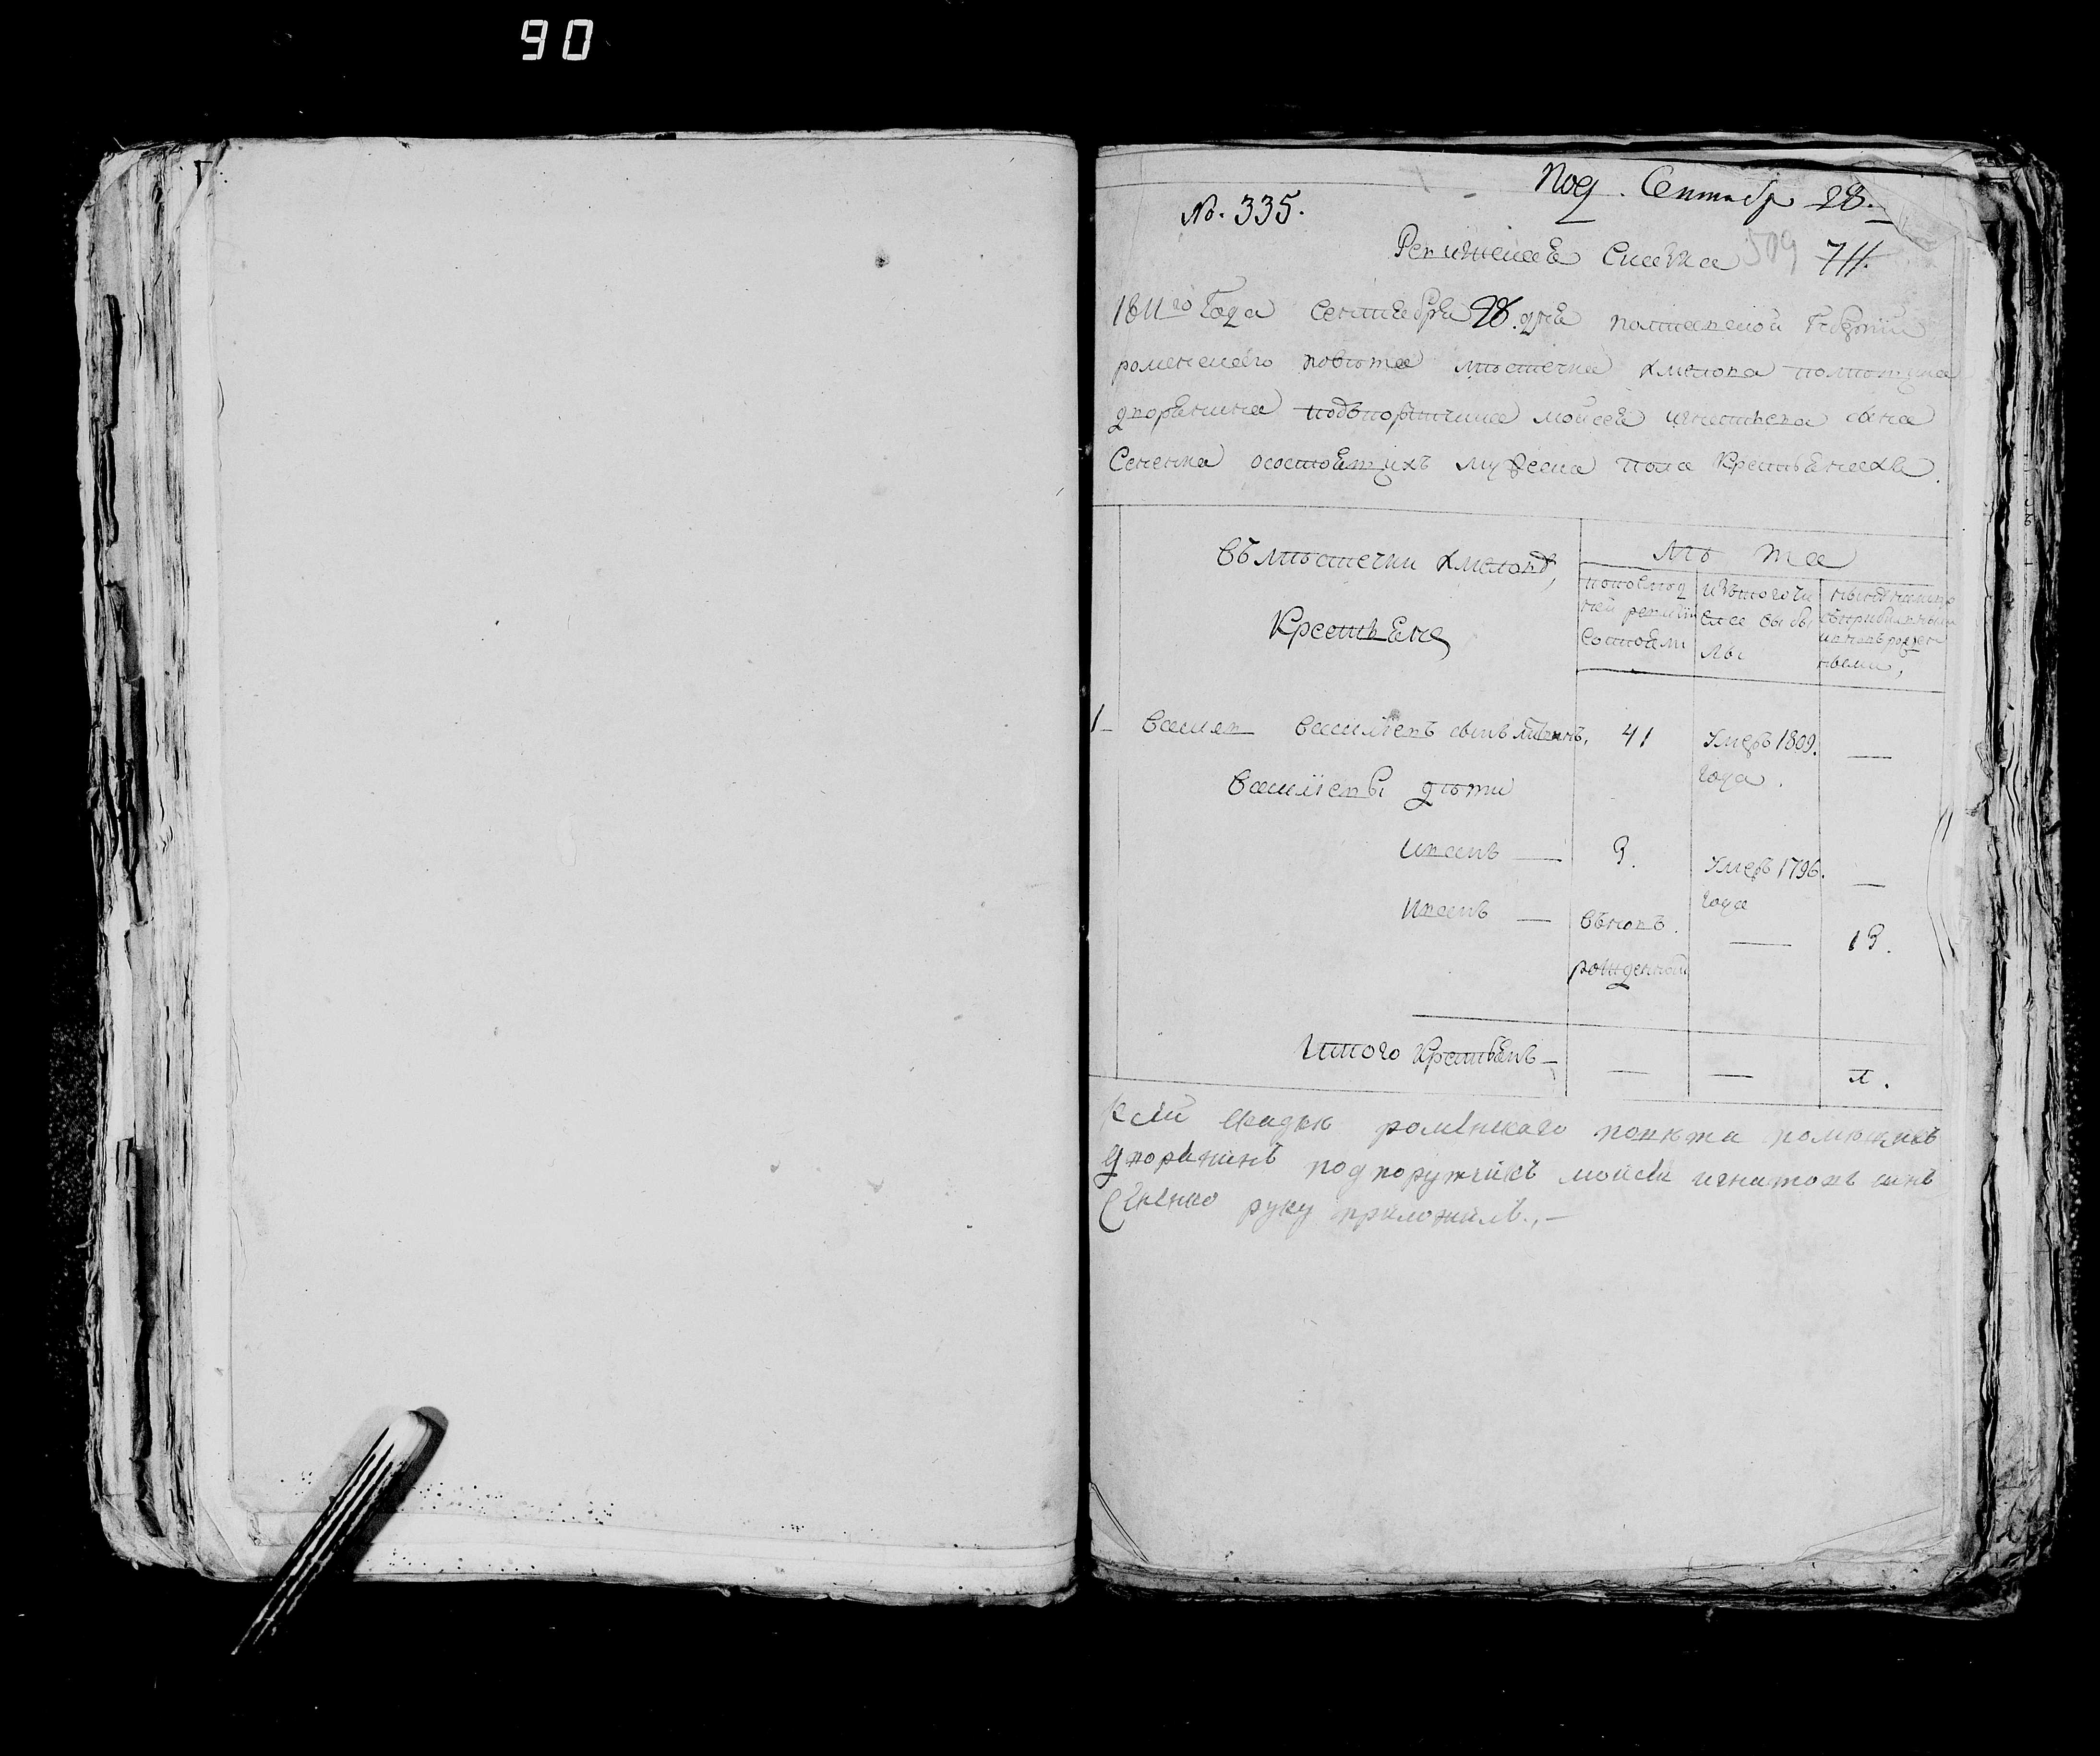 90
Под. Сентябр 28.
№. 335.
Ревижская Сказка 509 711.
1811го Года Сентября 28. дня полтавской Губернии
роменского повѣта мѣстечка хмелова помѣщика
дворянина подпорутчика мойсея игнатьева сына
Сененка осостоящихъ мужеска пола Крестьянахъ.
Въ мѣстечки хмеловѣ,
Крестьяне
Лѣ та
попослѣд
ней ревизіи
Состояли
Изътогочи
сла выбы
лы
нынѣ налицо
съприбылыми
ивновърожден
ными,
1 Васил Василіевъ сынъ 41 Умерь 1809.
года.
Василіевы дѣти
Иванъ — 3. Умерь 1796.
года —
Иванъ — Вьновъ.
рожденный — 13.
Итого Крестьянъ — — — 1.
Ксей скадки роменскаго повѣта помѣщикъ
дворянинъ подпоружчикъ мойсей игнатовъ синъ
Сененко руку приложилъ.,—